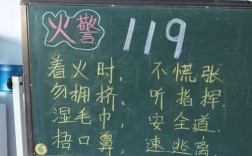 火警 119
着火时, 不慌张
勿拥挤, 听指挥
湿毛巾, 安全道
捂口鼻, 速逃离